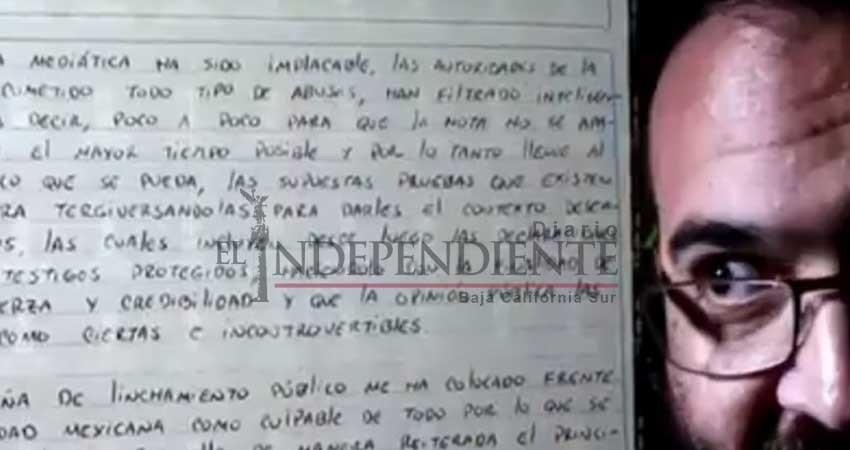 MEDIÁTICA HA SIDO IMPLACABLE, LAS AUTORIDADES DE LA
TODO TIPO DE ABUSOS, HAN FILTRADO
DECIR, POCO A POCO PARA QUE LA NOTA NO SE
EL MAYOR TIEMPO POSIBLE Y POR LO TANTO LLEGUE AL
QUE SE PUEDA, LAS SUPUESTAS PRUEBAS QUE EXISTEN
TERGIVERSANDOLAS PARA DARLES EL CONTEXTO
LAS CUALES DESDE LUEGO LAS
TESTIGOS PROTEGIDOS
Y CREDIBILIDAD Y QUE LA OPINIÓN PÚBLICA LAS
COMO CIERTAS E INCONTROVERTIBLES.
DE LINCHAMIENTO PÚBLICO ME HA COLOCADO FRENTE
MEXICANA COMO CULPABLE DE TODO POR LO QUE SE
DE MANERA REITERADA EL
Diario
EL INDEPENDIENTE
Baja California Sur